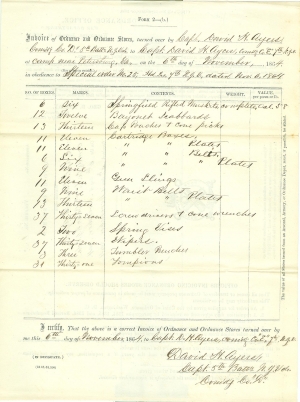 Form 2.—(b.)
Invoice of Ordnance and Ordnance Stores, turned over by Capt. David H. Ayers
Comdg Co. "D" 5th Batt N.J. Vols to Capt. David H. Ayers, Comdg Co. 7th N.J.
at Camp near Petersburg Va. on the 6th day of November, 1864
in obedience to Special order No. 25 Hd Qrs 7th N.J. Vols, dated Nov. 6 1864
NO. OF BOXES. MARKS. CONTENTS. WEIGHT. VALUE.
6 Six Springfield Rifled Muskets Cal 58
12 Twelve Bayonet Scabbards
13 Thirteen Cap Pouches & Cone picks
11 Eleven Cartridge Boxes
11 Eleven " " Plates
6 Six " " Belts
9 Nine " " Plates
11 Eleven Gun Slings
9 Nine Waist Belts
13 Thirteen " " Plates
37 Thirty-seven Screw drivers & Cone wrenches
2 Two Spring Vises
37 Thirty-seven Wipers
3 Three Tumbler Punches
31 Thirty-one Tompions
I certify, That the above is a correct Invoice of Ordnance and Ordnance Stores turned over by
me this 6th day of November, 1864, to Capt. D. H. Ayers, Comdg Co. 7th N.J.
David H. Ayers
Capt. 5th Batt N.J. Vols
Comdg Co.